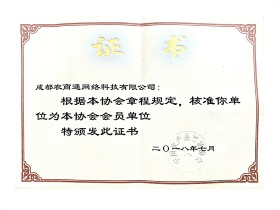 证书
成都农商通网络科技有限公司：
根据本协会章程规定，核准你单
位为本协会会员单位
特颁发此证书
二〇一八年七月